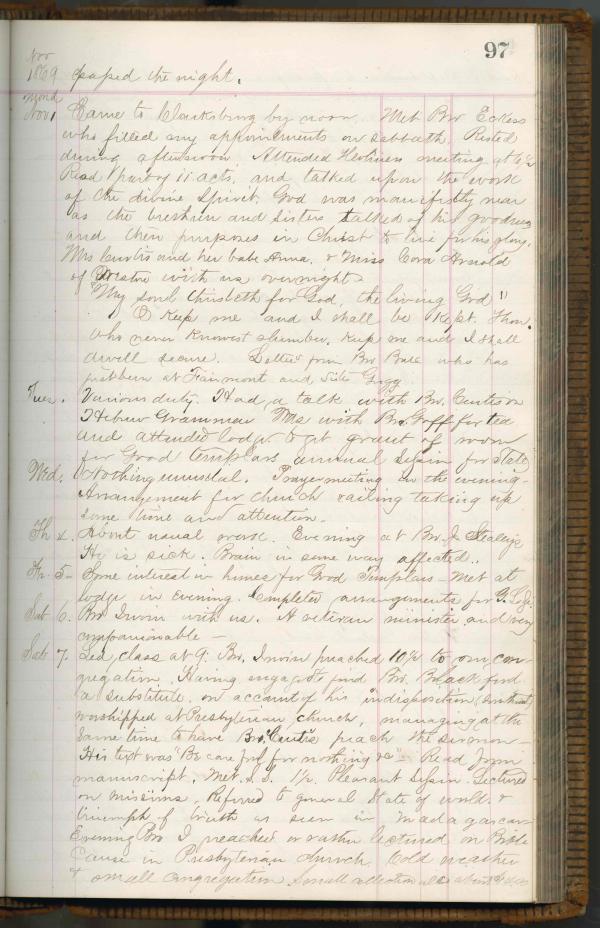 97
Nov
1869 passed the night.
Mond
Nov 1 Came to Clarksburg by noon. Met Bro Eckess
who filled my appointments on Sabbath. Rested
during afternoon. Attended Holiness meeting at 6½
Read part of 11 acts, and talked upon the work
of the divine Spirit. God was manifestly near
as the brethren and sisters talked of his goodness
and their purposes in Christ to live for his glory.
Mrs Curtis and her babe Anna, & Miss Cora Arnold
of with us over night.
"My soul thirsteth for God, the living God"
O Keep me and I shall be kept. Thou,
who never knowest slumber, keep me and I shall
dwell secure. Letter from Bro who has
just been at Fairmont and Sister Gregg
Tues. Various duty. Had a talk with Bro. Curtis on
Hebrew Grammar with Bro. Goff for tea
and attended lodge to get grant of room
for Good templars annual Session for State
Wed. Nothing unusual. Prayer meeting in the evening.
Arrangement for church railing taking up
some time and attention.
Th 4. About usual work. Evening at Bro. J. Stealeys
He is sick. Brain in some way affected..
Fr. 5- Some interest in homes for Good Templars - Met at
lodge in evening. Completed arrangements for G.
Sat 6. Bro Irwin with us. A veteran minister and very
companionable -
Sab 7. Led class at 9. Bro. Irwin preached 10½ to our con-
gregation. Having engaged to find Bro. Black find
a substitute on account of his indisposition
worshipped at Presbyterian church, managing at the
same time to have Bro. Curtis preach the sermon -
His text was "Be careful for nothing &c" - Read from
manuscript. Met S.S. 1½. Pleasant Session. Lectured
on missions. Referred to general State of world &
triumph of truth as seen in Madagascar
Evening Bro I preached or rather lectured on Bible
Cause in Presbyterian church. Cold weather
& small congregation. Small collection about